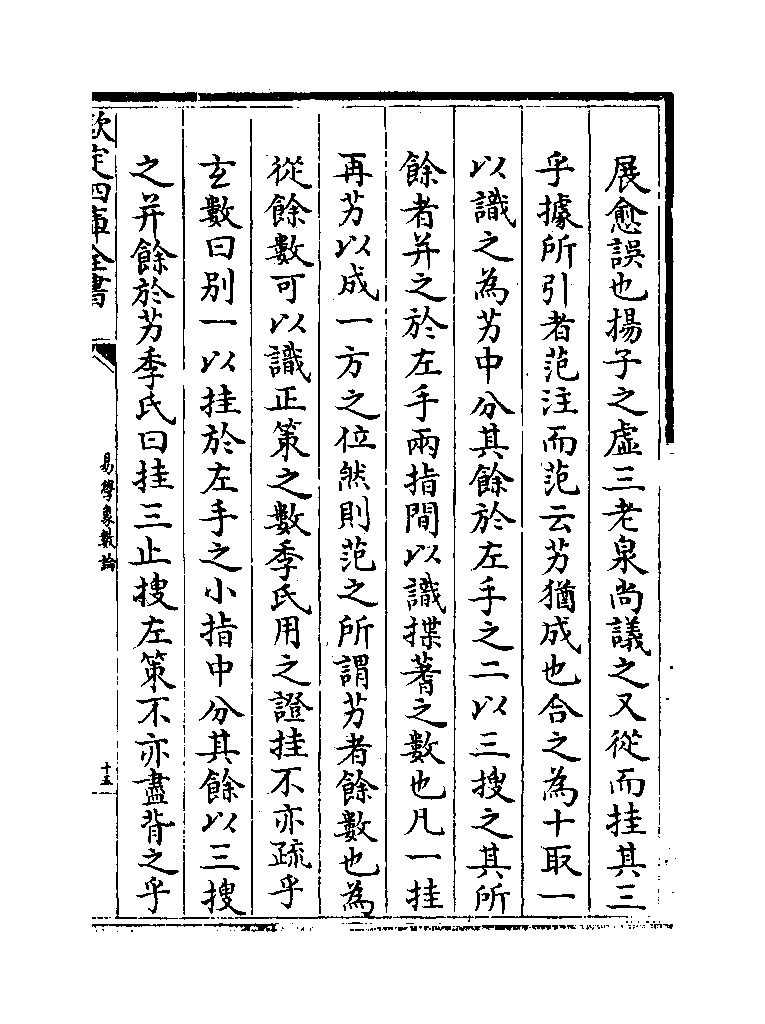 展愈誤也揚子之虛三老泉尚議之又從而挂其三
乎據所引者范注而范云艻猶成也合之為十取一
以識之為艻中分其餘於左手之二以三搜之其所
餘者并之於左手兩指間以識揲蓍之數也凡一挂
再艻以成一方之位然則范之所謂艻者餘數也為
從餘數可以識正策之數季氏用之證挂不亦疏乎
玄數曰别一以挂於左手之小指中分其餘以三搜
之并餘於艻季氏曰挂三止搜左策不亦盡背之乎
欽定四庫全書
易學象數論
十五